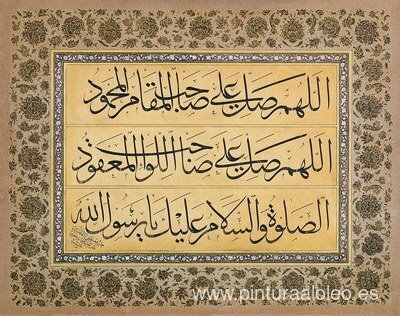 اللهم صل على صاحب المقام المحمود
اللهم صل على صاحب اللواء المعقود
الصلوة والسلام عليك يا رسول الله
www.pinturaaloleo.es